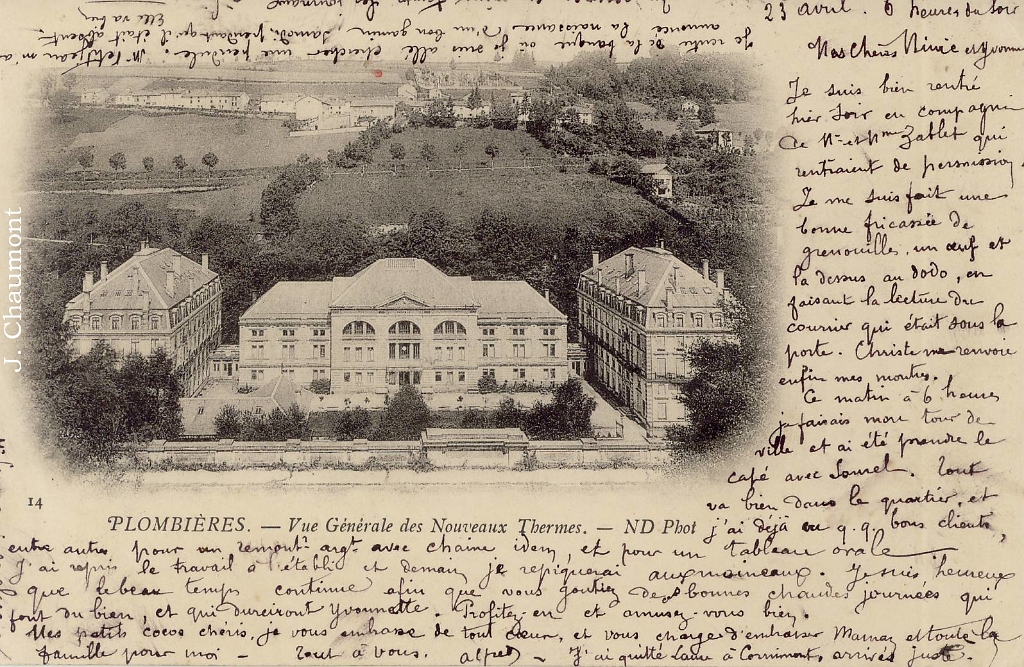 23 avril. 6 heures du soir
Mes chères Ninie et Yvonne
Je suis bien rentré
hier soir en compagnie
de Mr et Mme Zablet qui
rentraient de permission
Je me suis fait une
bonne fricassée de
grenouille, un œuf et
là dessus au dodo, en
faisant la lecture du
courier qui était sous la
porte. Christe me renvoie
enfin mes montres.
Ce matin à 6 heures
je faisais mon tour de
ville et ai été prendre le
café avec Tout
va bien dans le quartier, et
j'ai déjà vu q.q. bons clients,
entre autres pour un remontr argt avec chaine idem, et pour un tableau ovale
J'ai repris le travail à l'établi et demain je repiquerai aux moineaux. Je suis heureux
que le beau temps continue afin que vous goutiez de bonnes chaudes journées qui
font du bien, et qui dureiront Yvonnette. Profitez-en et amusez-vous bien.
Mes petits cocos chéris, je vous embrasse de tout cœur, et vous charge d'embrasser Maman et toute la
famille pour moi - Tout à vous. Alfred - J'ai quitté à Cornimont, arrivés juste.
Je rentre de la banque où je suis allé chercher une pendule. Mr Petitjean m'a
annoncé la naissance d'un bon gamin, samedi, pendant qu'il était absent.
Elle va bien
14
PLOMBIÈRES. — Vue Générale des Nouveaux Thermes. — ND Phot
J. Chaumont